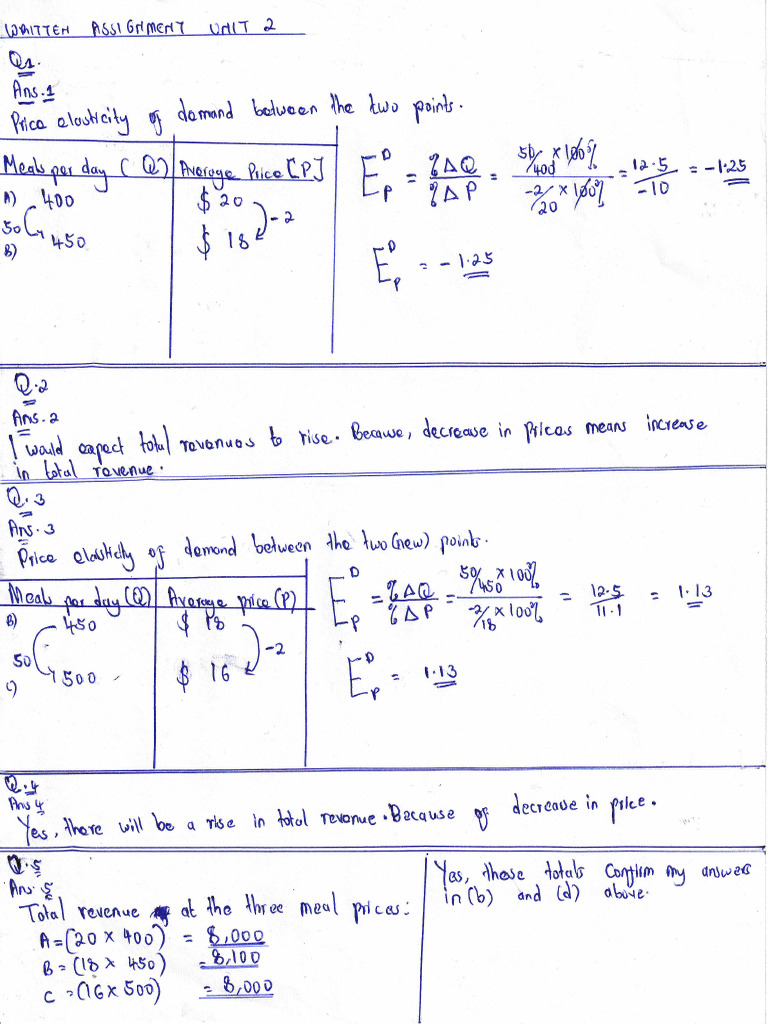 WRITTEN ASSIGNMENT UNIT 2
Q1.
Ans.1
Price elasticity of demand between the two points.
Meals per day (Q) Average Price [P]
A) 400 $ 20
50 -2
450 $ 18
B)
E D P = %ΔQ / %ΔP = 50/400 × 100% / -2/20 × 100% = 12.5 / -10 = -1.25
E D P = -1.25
Q.2
Ans.2
I would expect total revenues to rise. Because, decrease in prices means increase
in total revenue.
Q.3
Ans.3
Price elasticity of demand between the two (new) points.
Meals per day (Q) Average price (P)
B) 450 $ 18
50 -2
500 $ 16
C)
E D P = %ΔQ / %ΔP = 50/450 × 100% / -2/18 × 100% = 12.5 / 11.1 = 1.13
E D P = 1.13
Q.4
Ans 4
Yes, there will be a rise in total revenue. Because of decrease in price.
Q.5
Ans.5
Total revenue at the three meal prices:
A = (20 × 400) = 8,000
B = (18 × 450) = 8,100
C = (16 × 500) = 8,000
Yes, these totals Confirm my answers
in (b) and (d) above.